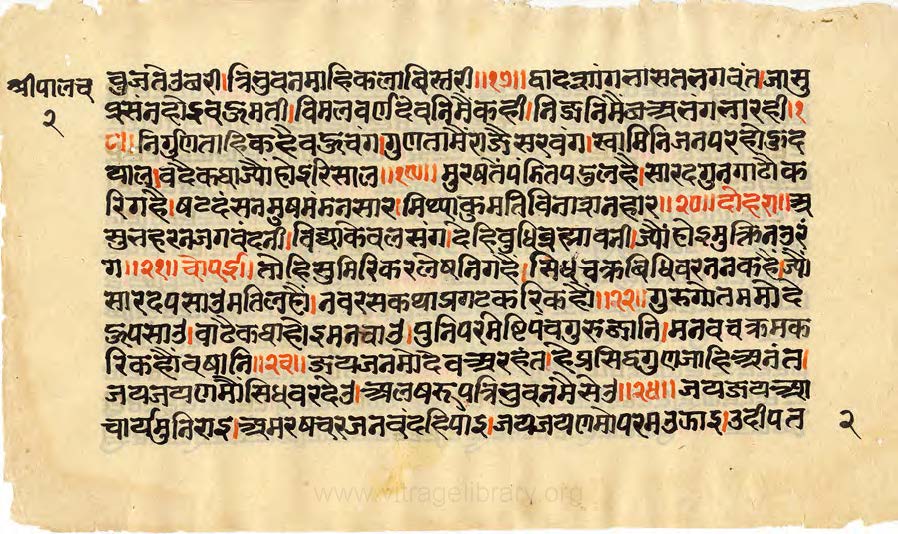 श्रीपालच
२
व्रजतेउबरी। त्रिभुवनमाहिकलाबिस्तरी॥१७॥ द्वादशांगनासतनगवंत। जासु
प्रसनहोइवऊमती। विमलवर्णदेवनिमैकही। निजनिमै अलगनारही॥१
८॥ निर्गुणताहिकहैवऊचंग। गुणतामेराजैसरवंग। स्वामिनिजनपरहोऊद
याल। वढैकथाज्यौंहोइरिसाल॥१९॥ मुरषतेपंडितपदुलहै। सारदगुनगाढौक
रिगहै। षटदंसनमुषमंमनसार। मिथ्याकुमतिविनाशनहार॥२०॥ दोहरा॥ अ
सुनहरनजगवंदनी। विद्याकेवलसर्ग। देहिबुधिब्रह्मावनी। ज्यौंहोइमुक्तिन
ग॥२१॥ चौपई॥ तोहिसुमिरिकरलेषनिगहै। सिधचक्रबिधिवरननकहै। ज्यौं
सारदपसाउमतिलहौं। नवरसकथाप्रगटकरिकहौं॥२२॥ गुरुगोतममोदे
ऊपसाउ। वाढेकथाहोइमनचाउ। पुनिपरमिष्टिपंचगुरुजानि। मनवचक्रमक
रिकहौवषानि॥२३॥ जयजनमोदेवअरहंत। हैप्रसिद्धगुणजाहिअनंत।
जयजयणमोसिधवरदेउ। अलषरूपत्रिभुवनमैसेउ॥२४॥ जयजयआ
चार्यमुनिराइ। अमरषचरजनवंदहिपाइ। जयजयणमोपरमउऊाइ। उदीपन
२
www.vitragelibrary.org